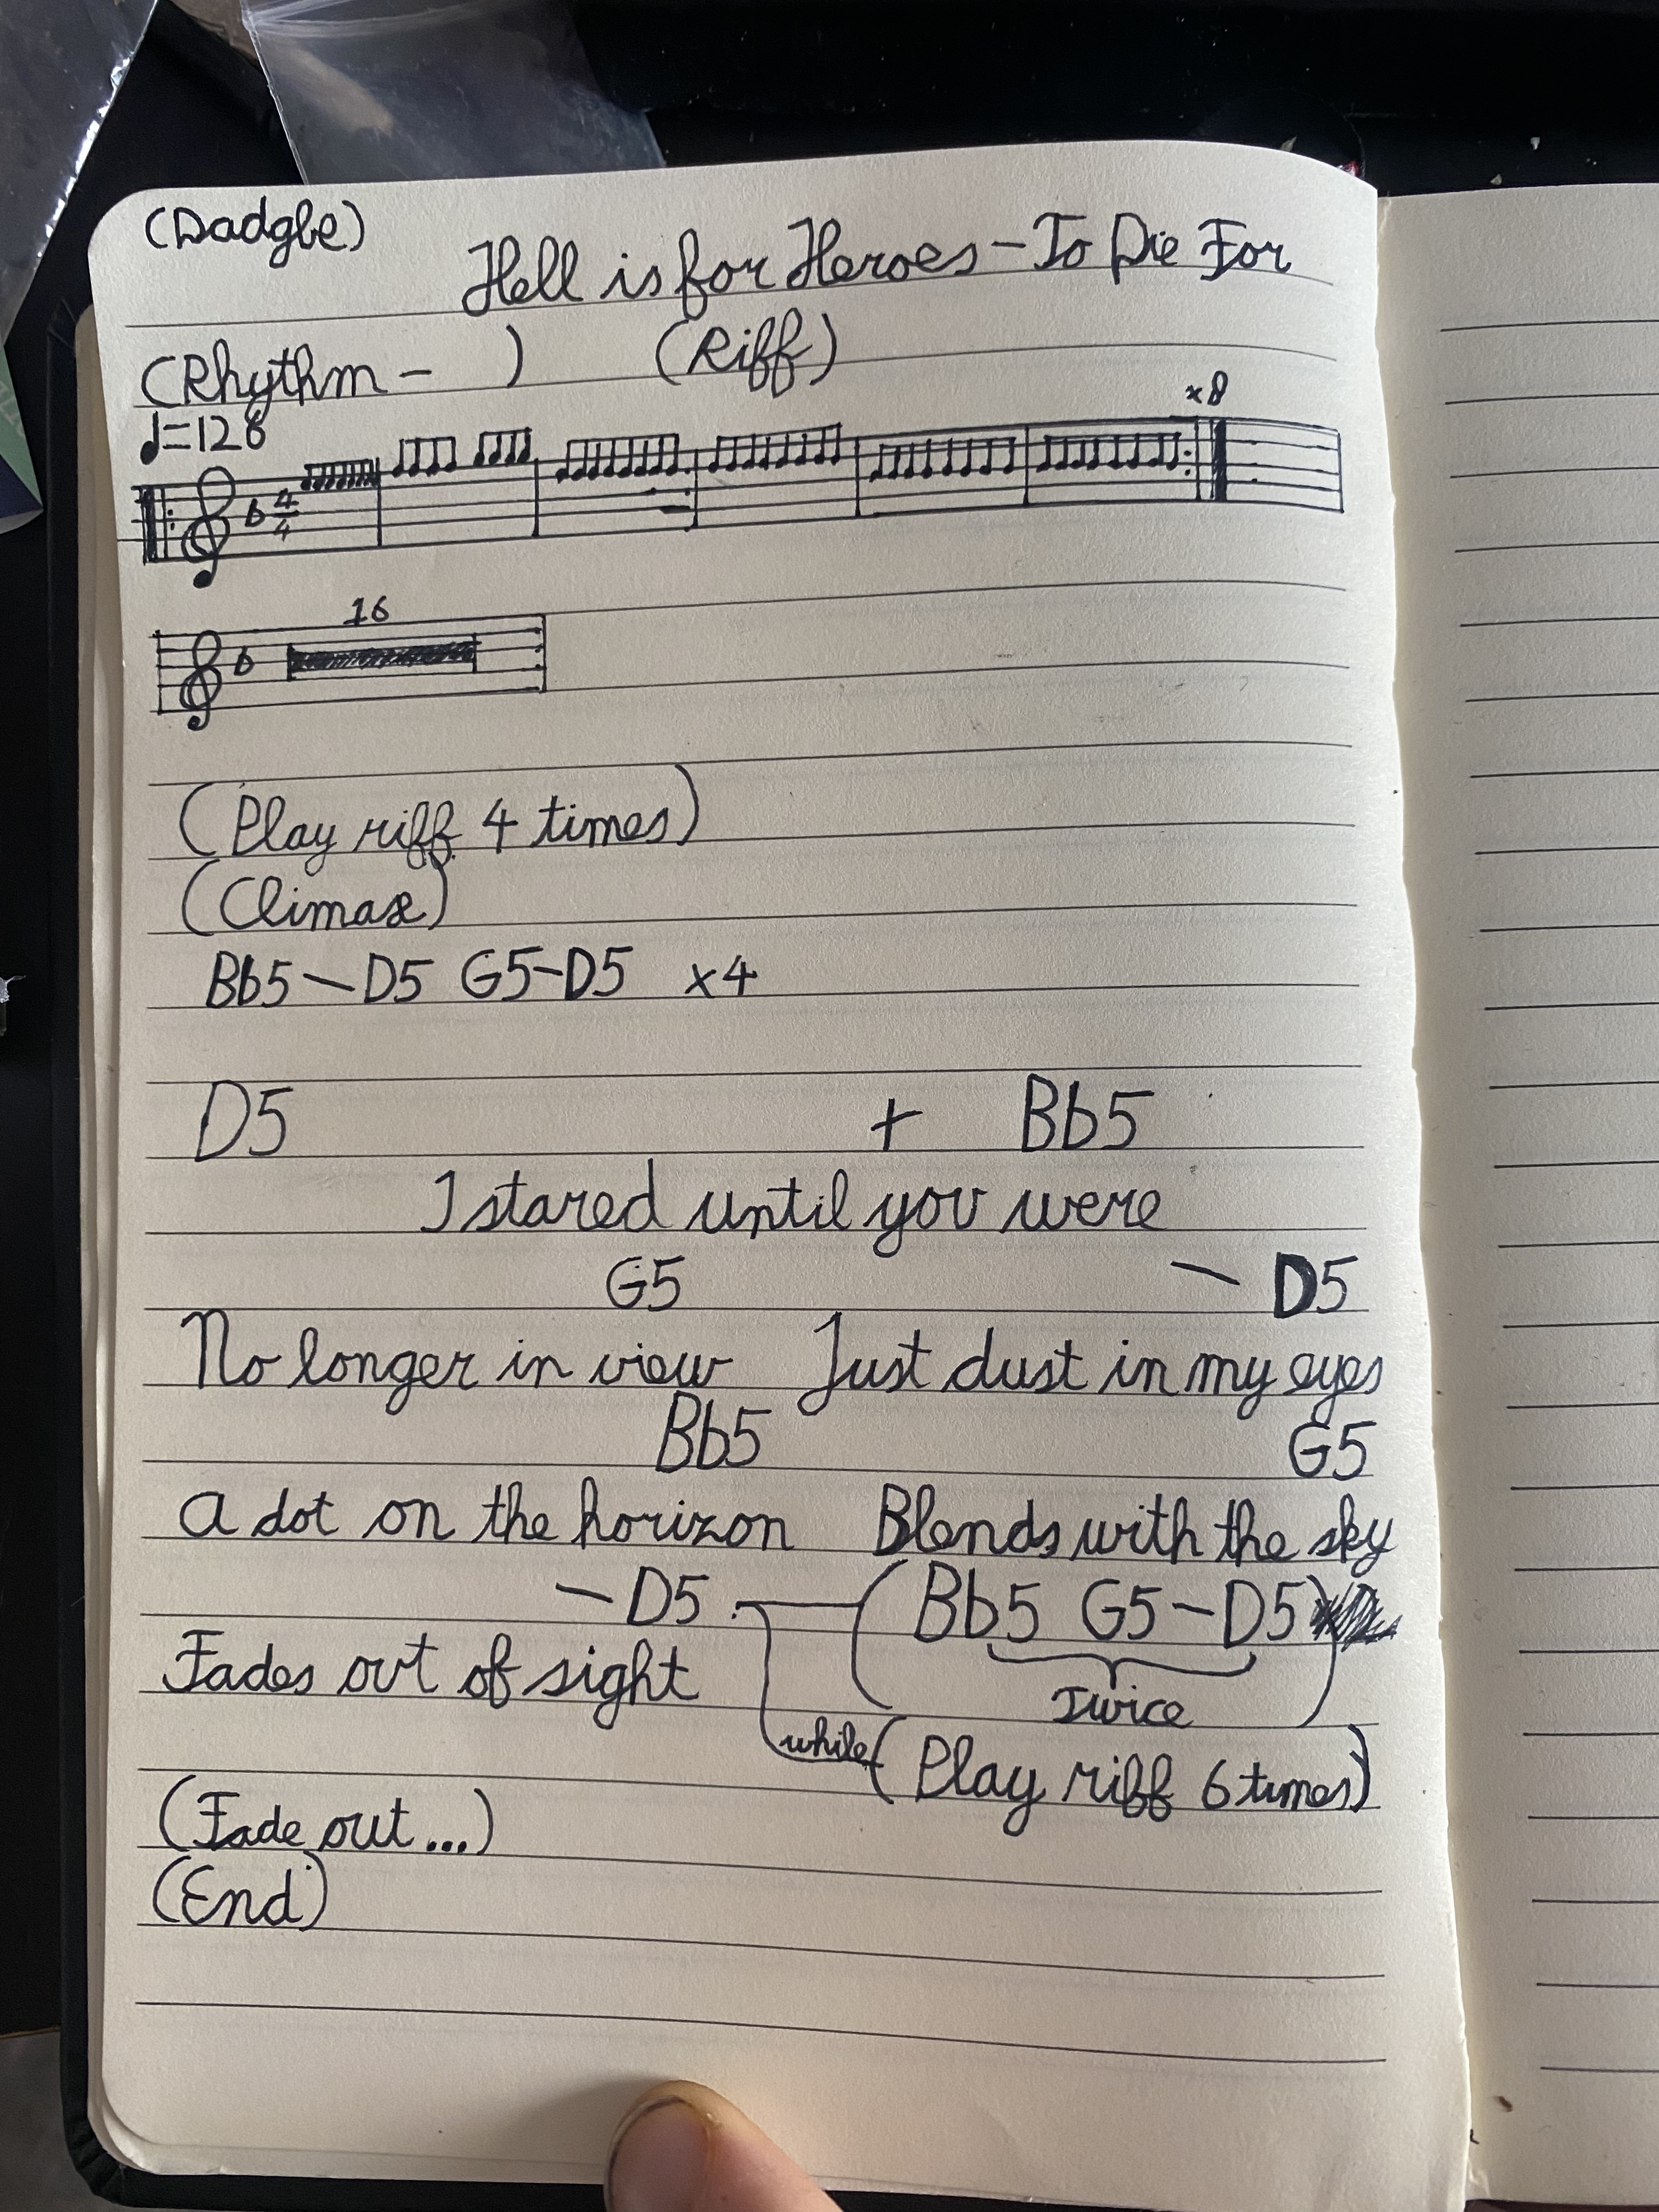 (Dadgbe)
Hell is for Heroes - To Die For
(Rhythm - ) (Riff)
♩=128
x8
b 4/4
16
b
(Play riff 4 times)
(Climax)
Bb5 - D5 G5 - D5 x4
D5 + Bb5
I stared until you were
G5 - D5
No longer in view Just dust in my eyes
Bb5 G5
A dot on the horizon Blends with the sky
- D5 (Bb5 G5 - D5)
Fades out of sight
Twice
while (Play riff 6 times)
(Fade out...)
(End)